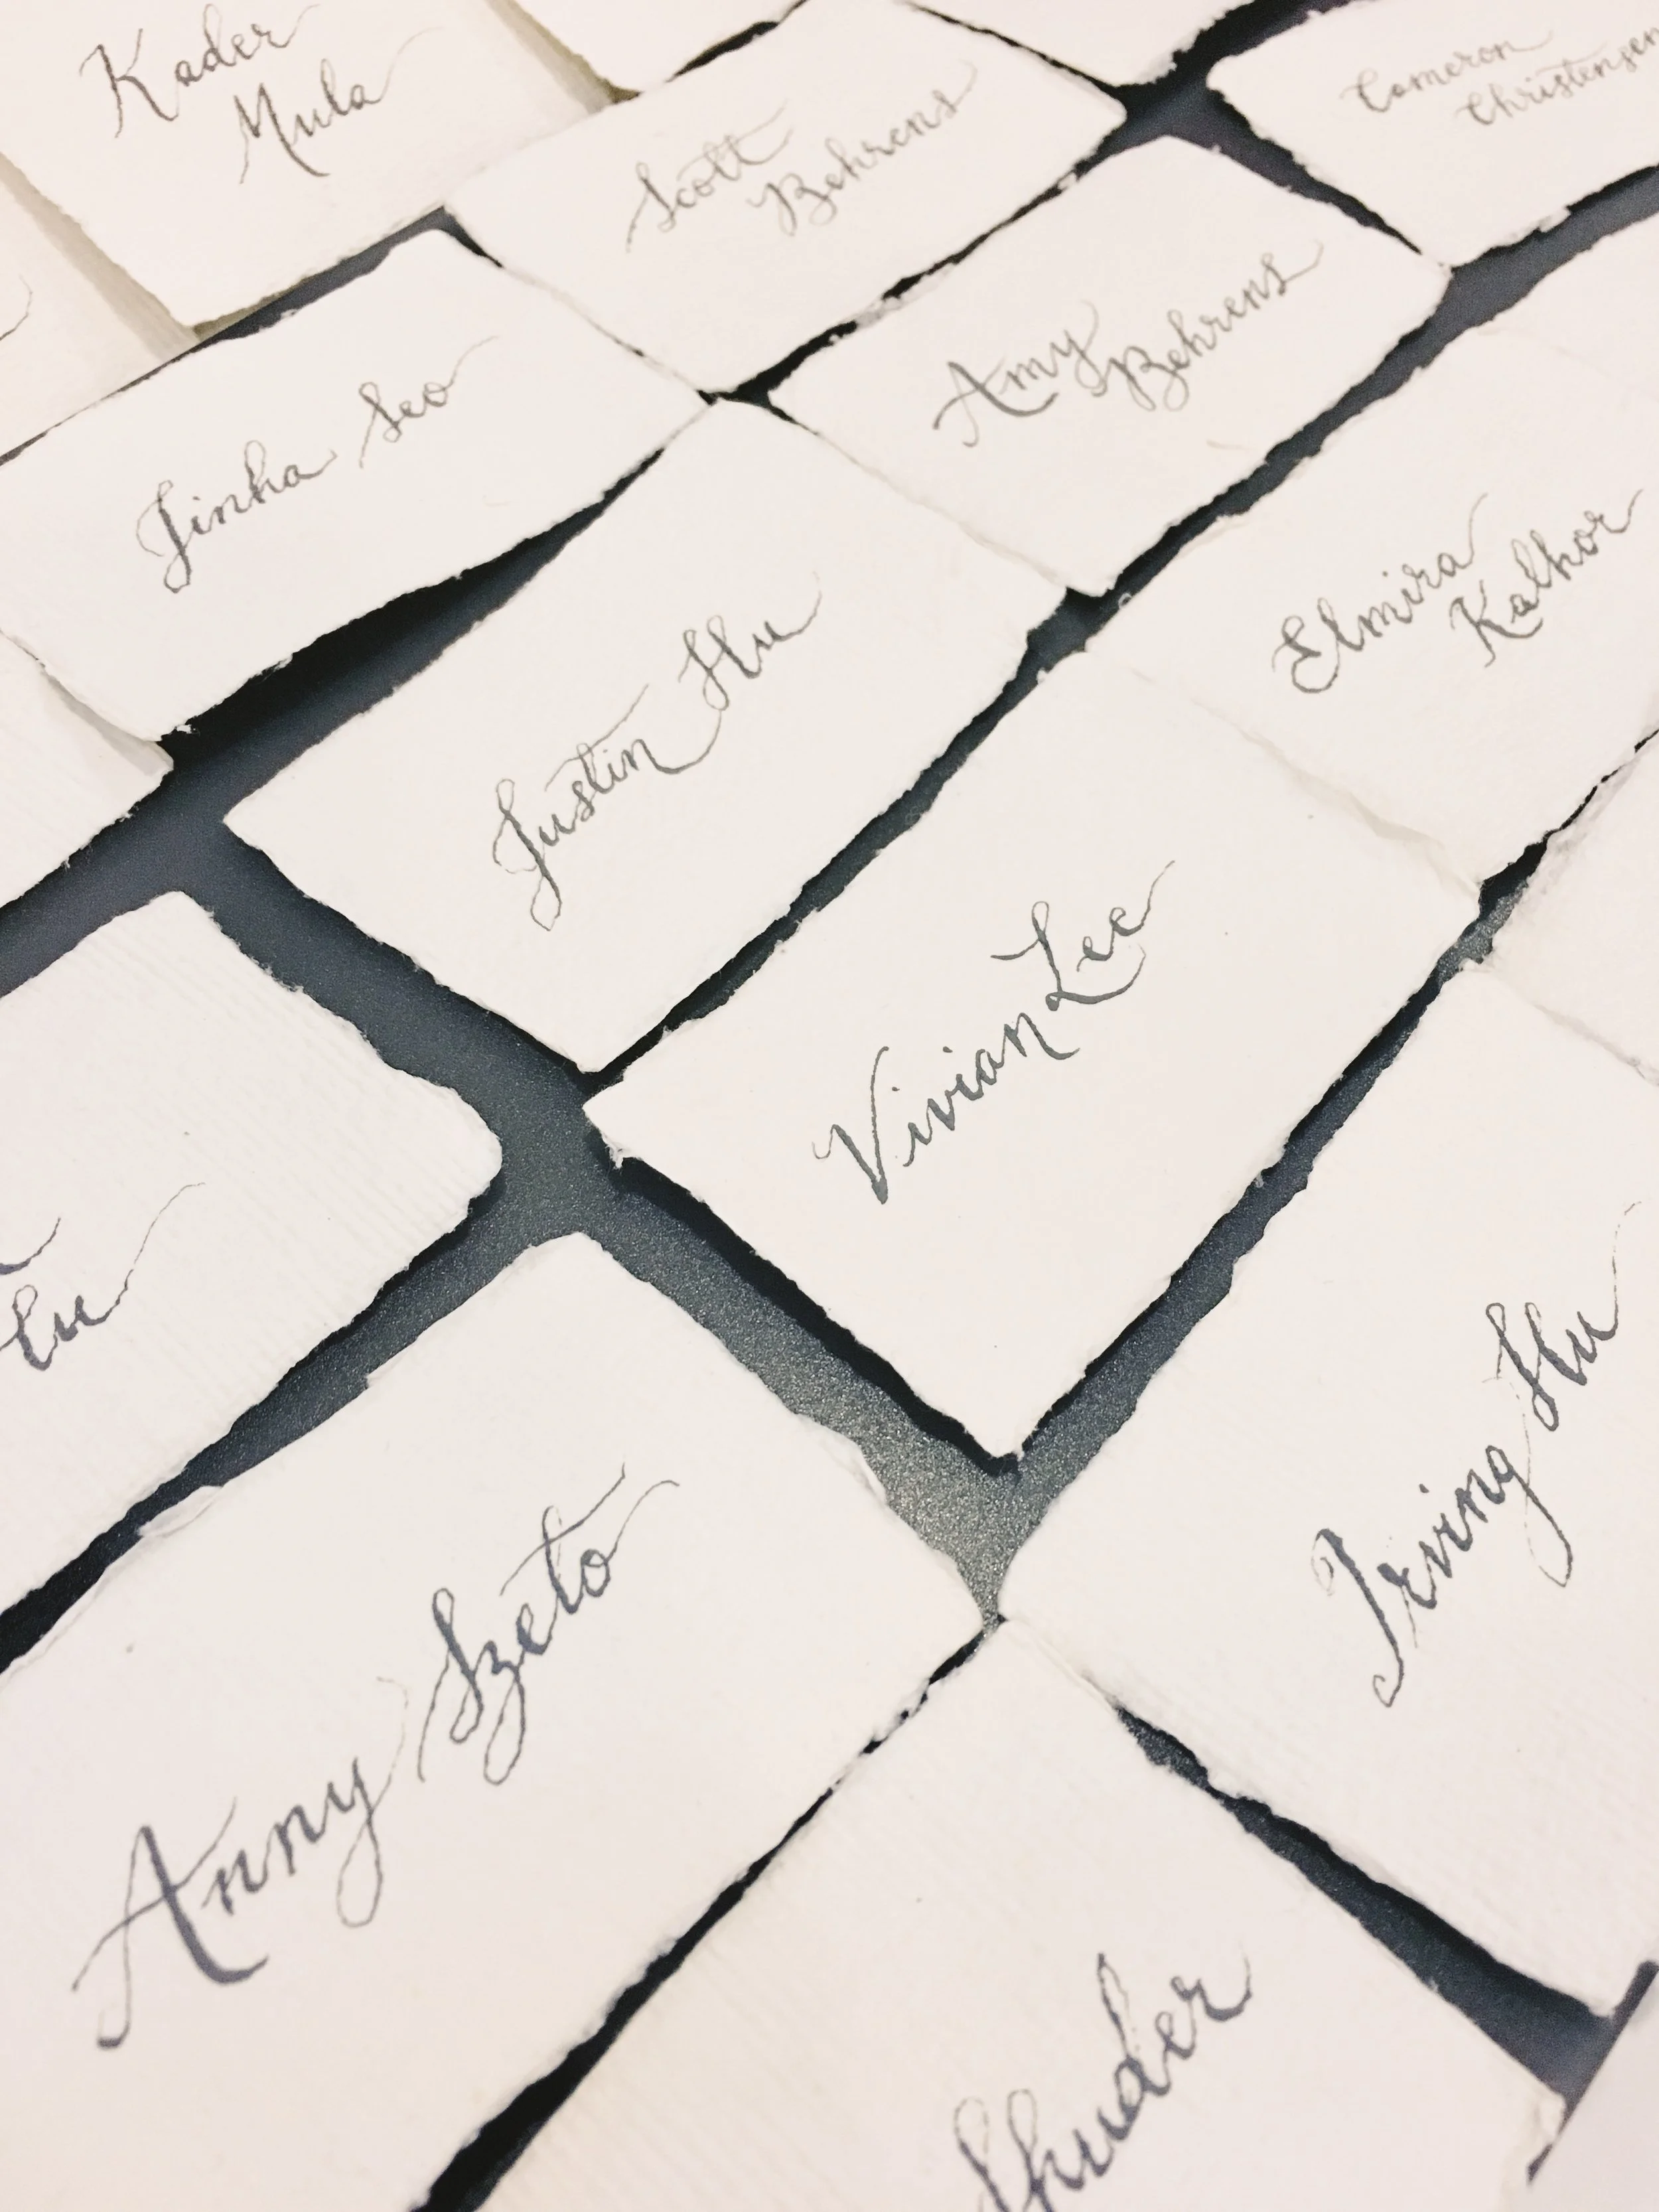 Kader
Mula
Scott
Behrens
Cameron
Christensen
Jinha Seo
Amy
Behrens
Justin Hu
Elmira
Kalhor
Vivian Lee
Irving Hu
Anny Szeto
Shuder